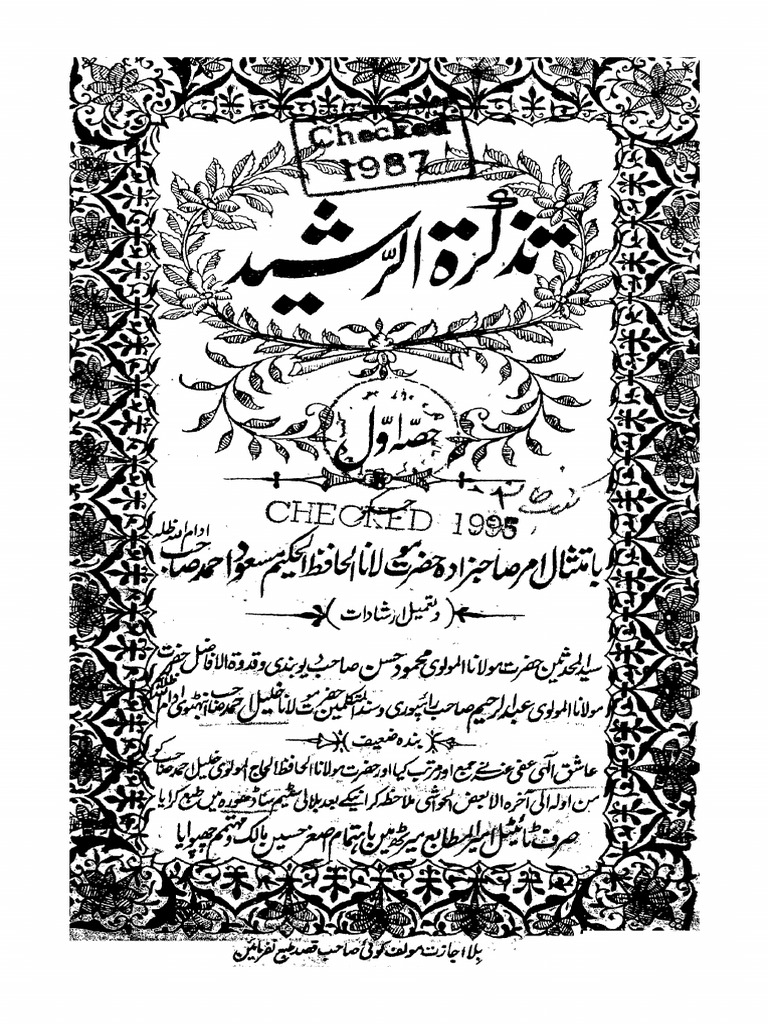 Checked
1987
تذکرۃ الرّشید
حصہ اوّل
CHECKED 1995
بامتثال امر صاحبزادہ حضرت مولانا الحافظ الحکیم مسعود احمد صاحب ادام اللہ ظلہ
(و تعمیل ارشادات)
سید المحدثین حضرت مولانا المولوی محمود حسن صاحب دیوبندی و قدوۃ الافاضل حضرت
مولانا المولوی عبدالرحیم صاحب رائپوری و سند المتکلمین حضرت مولانا خلیل احمد صاحب انبہٹوی ادام اللہ
بندہ ضعیف
عاشق الٰہی عفی عنہ نے جمع اور مرتب کیا اور حضرت مولانا الحافظ الحاج المولوی خلیل احمد صاحب کو
من اولہ الی آخرہ الا بعض الحواشی ملاحظہ کرانیکے بعد بلالی سٹیم ساڈھورہ میں طبع کرایا
صرف ٹائیٹل امیر المطابع میرٹھ میں باہتمام صغیر حسین مالک و مہتمم چھپوایا
بلا اجازت مولف کوئی صاحب قصد طبع نفرمائیں